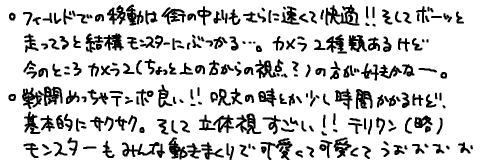 ○ フィールドでの移動は街の中よりもさらに速くて快適!! そしてボーッと
走ってると結構モンスターにぶつかる…。カメラ2種類あるけど
今のところカメラ2(ちょっと上の方からの視点?)の方が好きかなー。
○ 戦闘めっちゃテンポ良い!! 呪文の時とか少し時間かかるけど、
基本的にサクサク。そして立体視すごい!! テリワン(略)
モンスターもみんな動きまくりで可愛くて可愛くてうおおおお